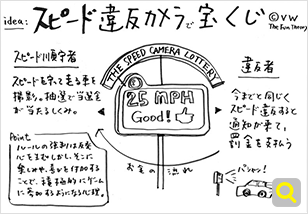 idea: スピード違反カメラで宝くじ
©VW
The Fun Theory
スピード順守者
スピードを守って走る車を
撮影。抽選で当選金
が当たるしくみ。
THE SPEED CAMERA LOTTERY
25 MPH
Good!
違反者
今までと同じく
スピード違反すると
通知が来て、
罰金を支払う
お金の流れ
Point
ルールの強制は反発
心をまねく。しかし、そこに
楽しみや喜びを付加する
ことで、積極的にゲーム
に参加するようになる心理。
パシャッ!